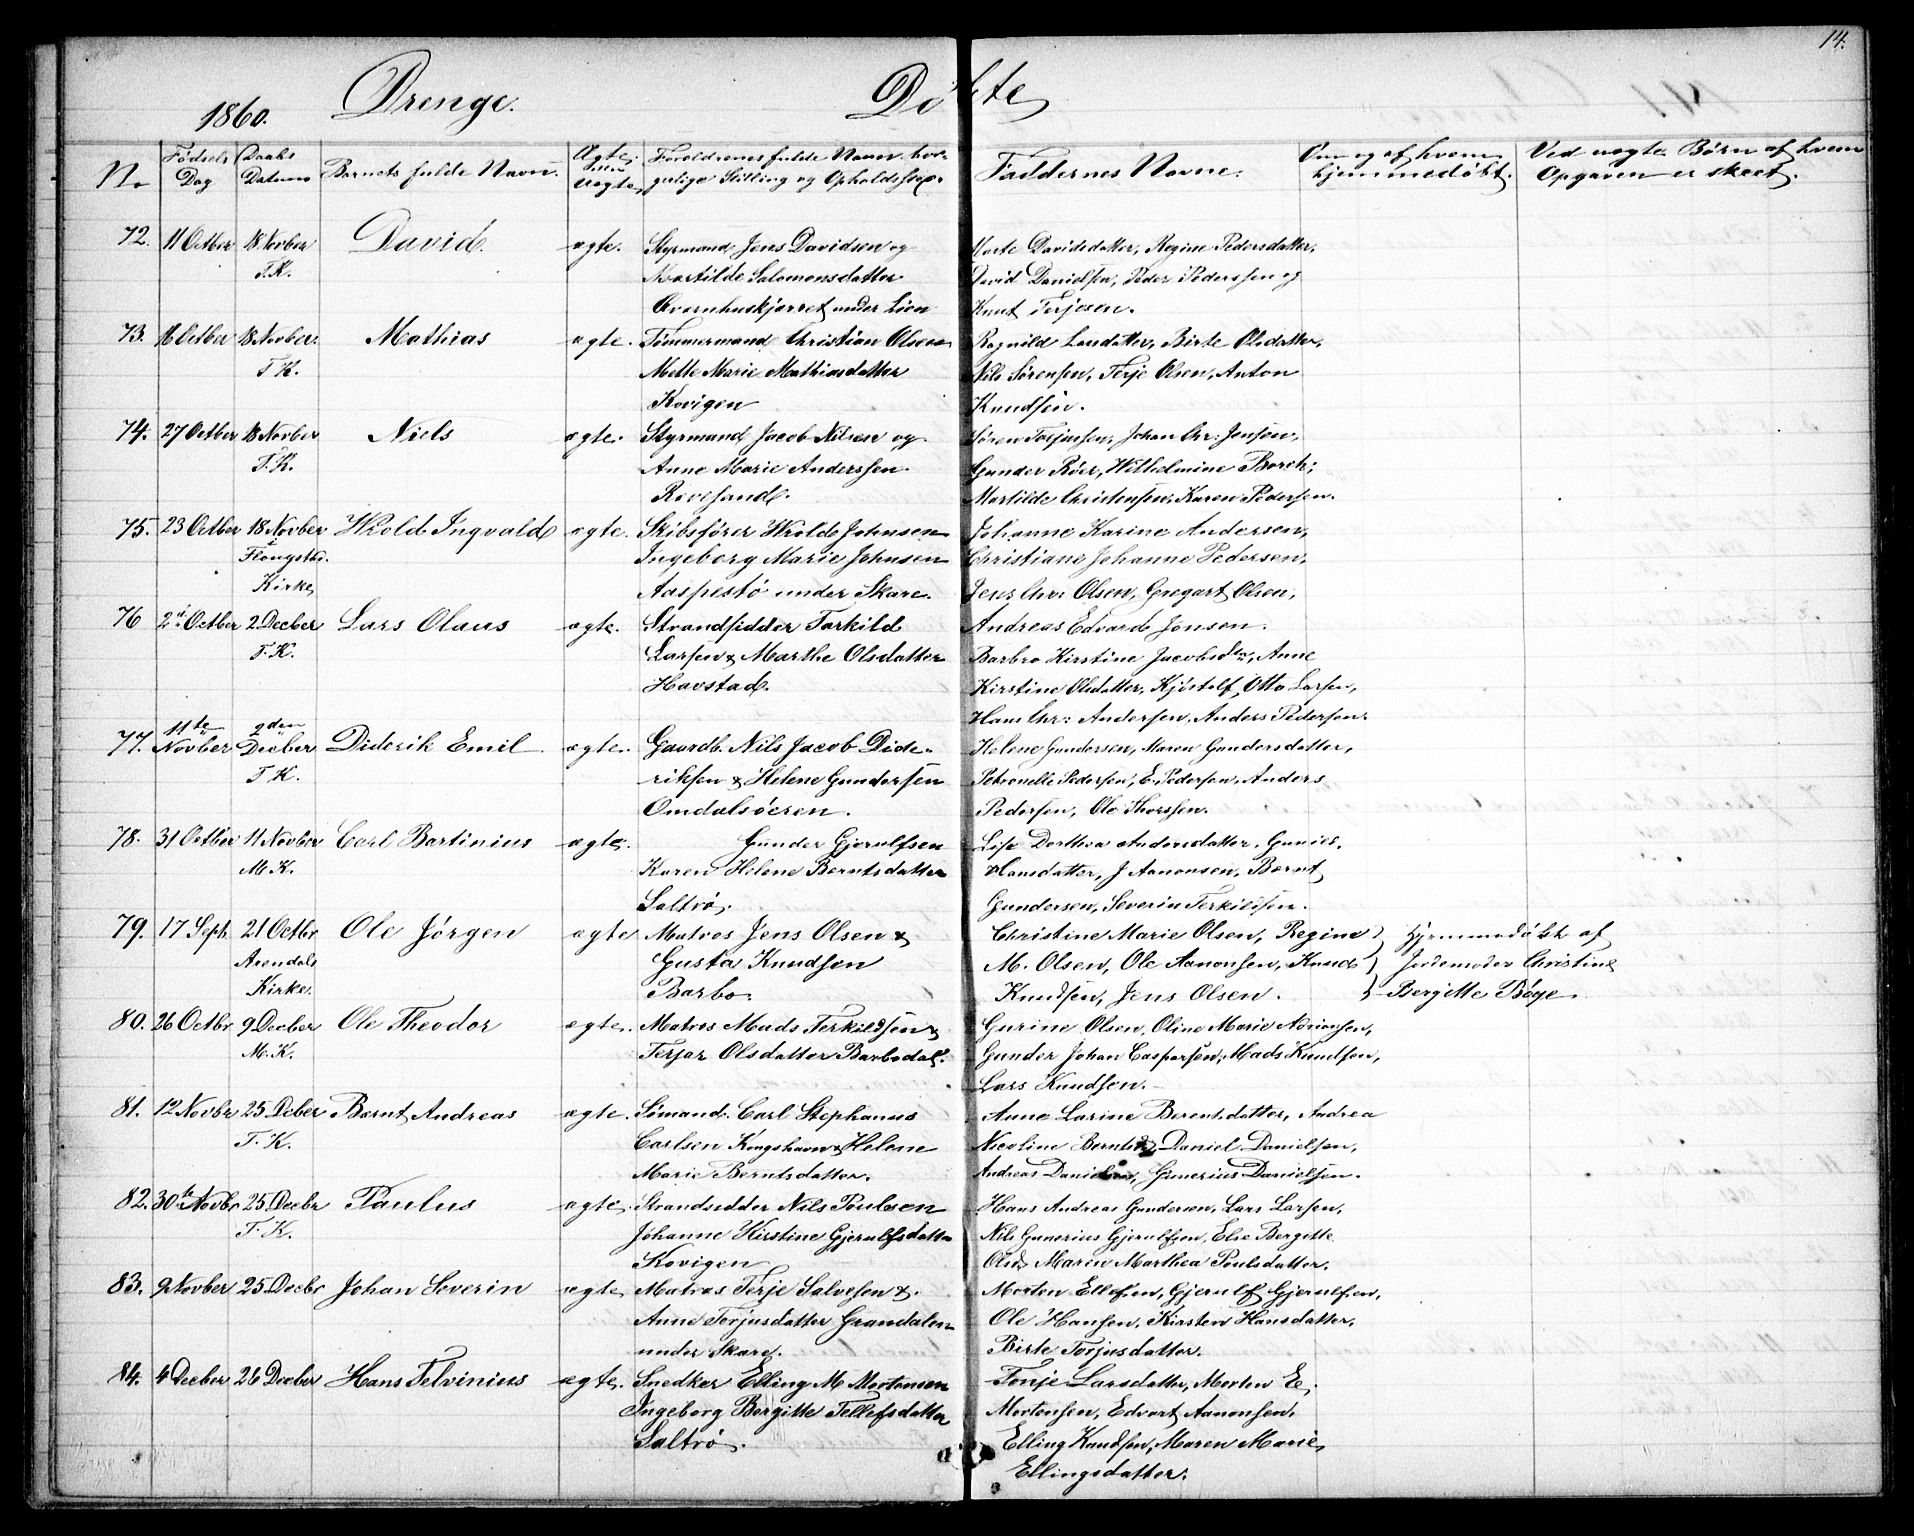 14.
1860. Drenge. Døbte
No Fødsels Dag Daabs Datum Barnets fulde Navn. Ægte eller Uægte Forældrenes fulde Navn, bor-
gerlige Stilling og Opholdssted. Faddernes Navne. Om og af hvem hjemmedøbt. Ved uægte Børn af hvem Opgaven er skeet.
72. 11 Octber 18 Novber David. ægte. Styrmand Jens Davidsen og Marte Davidsdatter, Regine Pedersdatter,
T. K. Martilde Salomonsdatter David Danielsen, Peder Pederssen og
under Lien Knut Terjesen.
73. 16 Octber 18 Novber. Mathias ægte. Tømmermand Christian Olsen Ragnild Larsdatter, Birte Olsdatter,
T K. Mette Marie Mathiasdatter Nils Sørensen, Terje Olsen, Anton
Kovigen Knudsen.
74. 27 Octber 18 Novber Niels ægte. Styrmand Jacob Nilsen og Søren Torjusen, Johan Chr: Jensen,
T. K. Anne Marie Anderssen Gunder Röer, Wilhelmine Borch,
Revesand. Martilde Christensen, Karen Pedersen.
75. 23 Octber 18 Novber Wrold Ingvald ægte. Skibsfører Wrold Johnsen Johanne Karine Andersen,
i Flougstad. Ingeborg Marie Johnsen Christiane Johanne Pedersen,
Kirke Aaspestö under Skare. Jens Chr: Olsen, Gregart Olsen,
76 2d Octber 2 Decber Lars Olaus ægte. Strandsidder Tarkild Andreas Edvard Jensen.
T. K. Larsen & Marthe Olsdatter Barbra Kirstine Jacobsdtr, Anne
Havstad. Kirstine Olsdatter, Kjöstolf Otto Larsen,
Hans Chr: Andersen, Anders Pedersen.
77. 11te Novber 2den Decber Diderik Emil ægte. Gaardb. Nils Jacob Dide- Helene Gundersen, Maren Gundersdatter,
T K. riksen & Helene Gundersen Petronelle Pedersen, E. Pedersen, Anders
Omdalsöeren. Pedersen, Ole Thorssen.
78. 31 Octber 11 Novber Carl Bartinius ægte. Gunder Gjerulfsen Lise Dorthea Andersdatter,
M. K. Karen Helene Berntsdatter Hansdatter, J Aanonsen, Bernt
Saltrö. Gundersen, Severin Terkildsen.
79. 17 Septb 21 Octbr Ole Jörgen ægte Matros Jens Olsen & Christine Marie Olsen, Regine Hjemmedöbt af
Arendals Gusta Knudsen M. Olsen, Ole Aanonsen, Knud Jordemoder Christine
Kirke. Barbo. Knudsen, Jens Olsen. Bergitte Böge.
80. 26 Octbr 9 Decber Ole Theodor ægte. Matros Mads Terkildsen & Gurine Olsen, Oline Marie Adriansen,
M. K. Terjer Olsdatter Barbodal. Gunder Johan Caspersen, Mads Knudsen,
Lars Knudsen.
81. 12 Novbr 25 Decber Bernt Andreas ægte. Sömand. Carl Stephanus Anne Larine Berentsdatter, Andrea
T. K. Carlsen Kongshavn & Helene Nicoline Berntsd, Daniel Danielsen,
Marie Berntsdatter. Andreas Danielsen, Gunerius Danielsen.
82. 30te Novbr 25 Decbr Paulus ægte. Strandsidder Nils Poulsen Hans Andreas Gundersen, Lars Larsen,
T. K. Johanne Kirstine Gjerulfsdatter Nils Gunerius Gjerulfsen, Else Bergitte
Kovigen Olsd, Maren Marthea Poulsdatter.
83. 9 Novber 25 Decbr Johan Severin ægte Matros Terje Salvesen & Morten Ellefsen, Gjerulf Gjerulfsen,
Anne Torjusdatter Grandalen Ole Hansen, Kirsten Hansdatter,
under Skare. Birte Torjusdatter.
84. 4 Decber 26 Decber Hans Telvinius ægte. Snedker Elling M Mortensen Tonje Larsdatter, Morten E.
Ingeborg Bergitte Tellefsdatter Mortensen, Edvart Aanonsen,
Saltrö. Elling Knudsen, Maren Marie
Ellingsdatter.